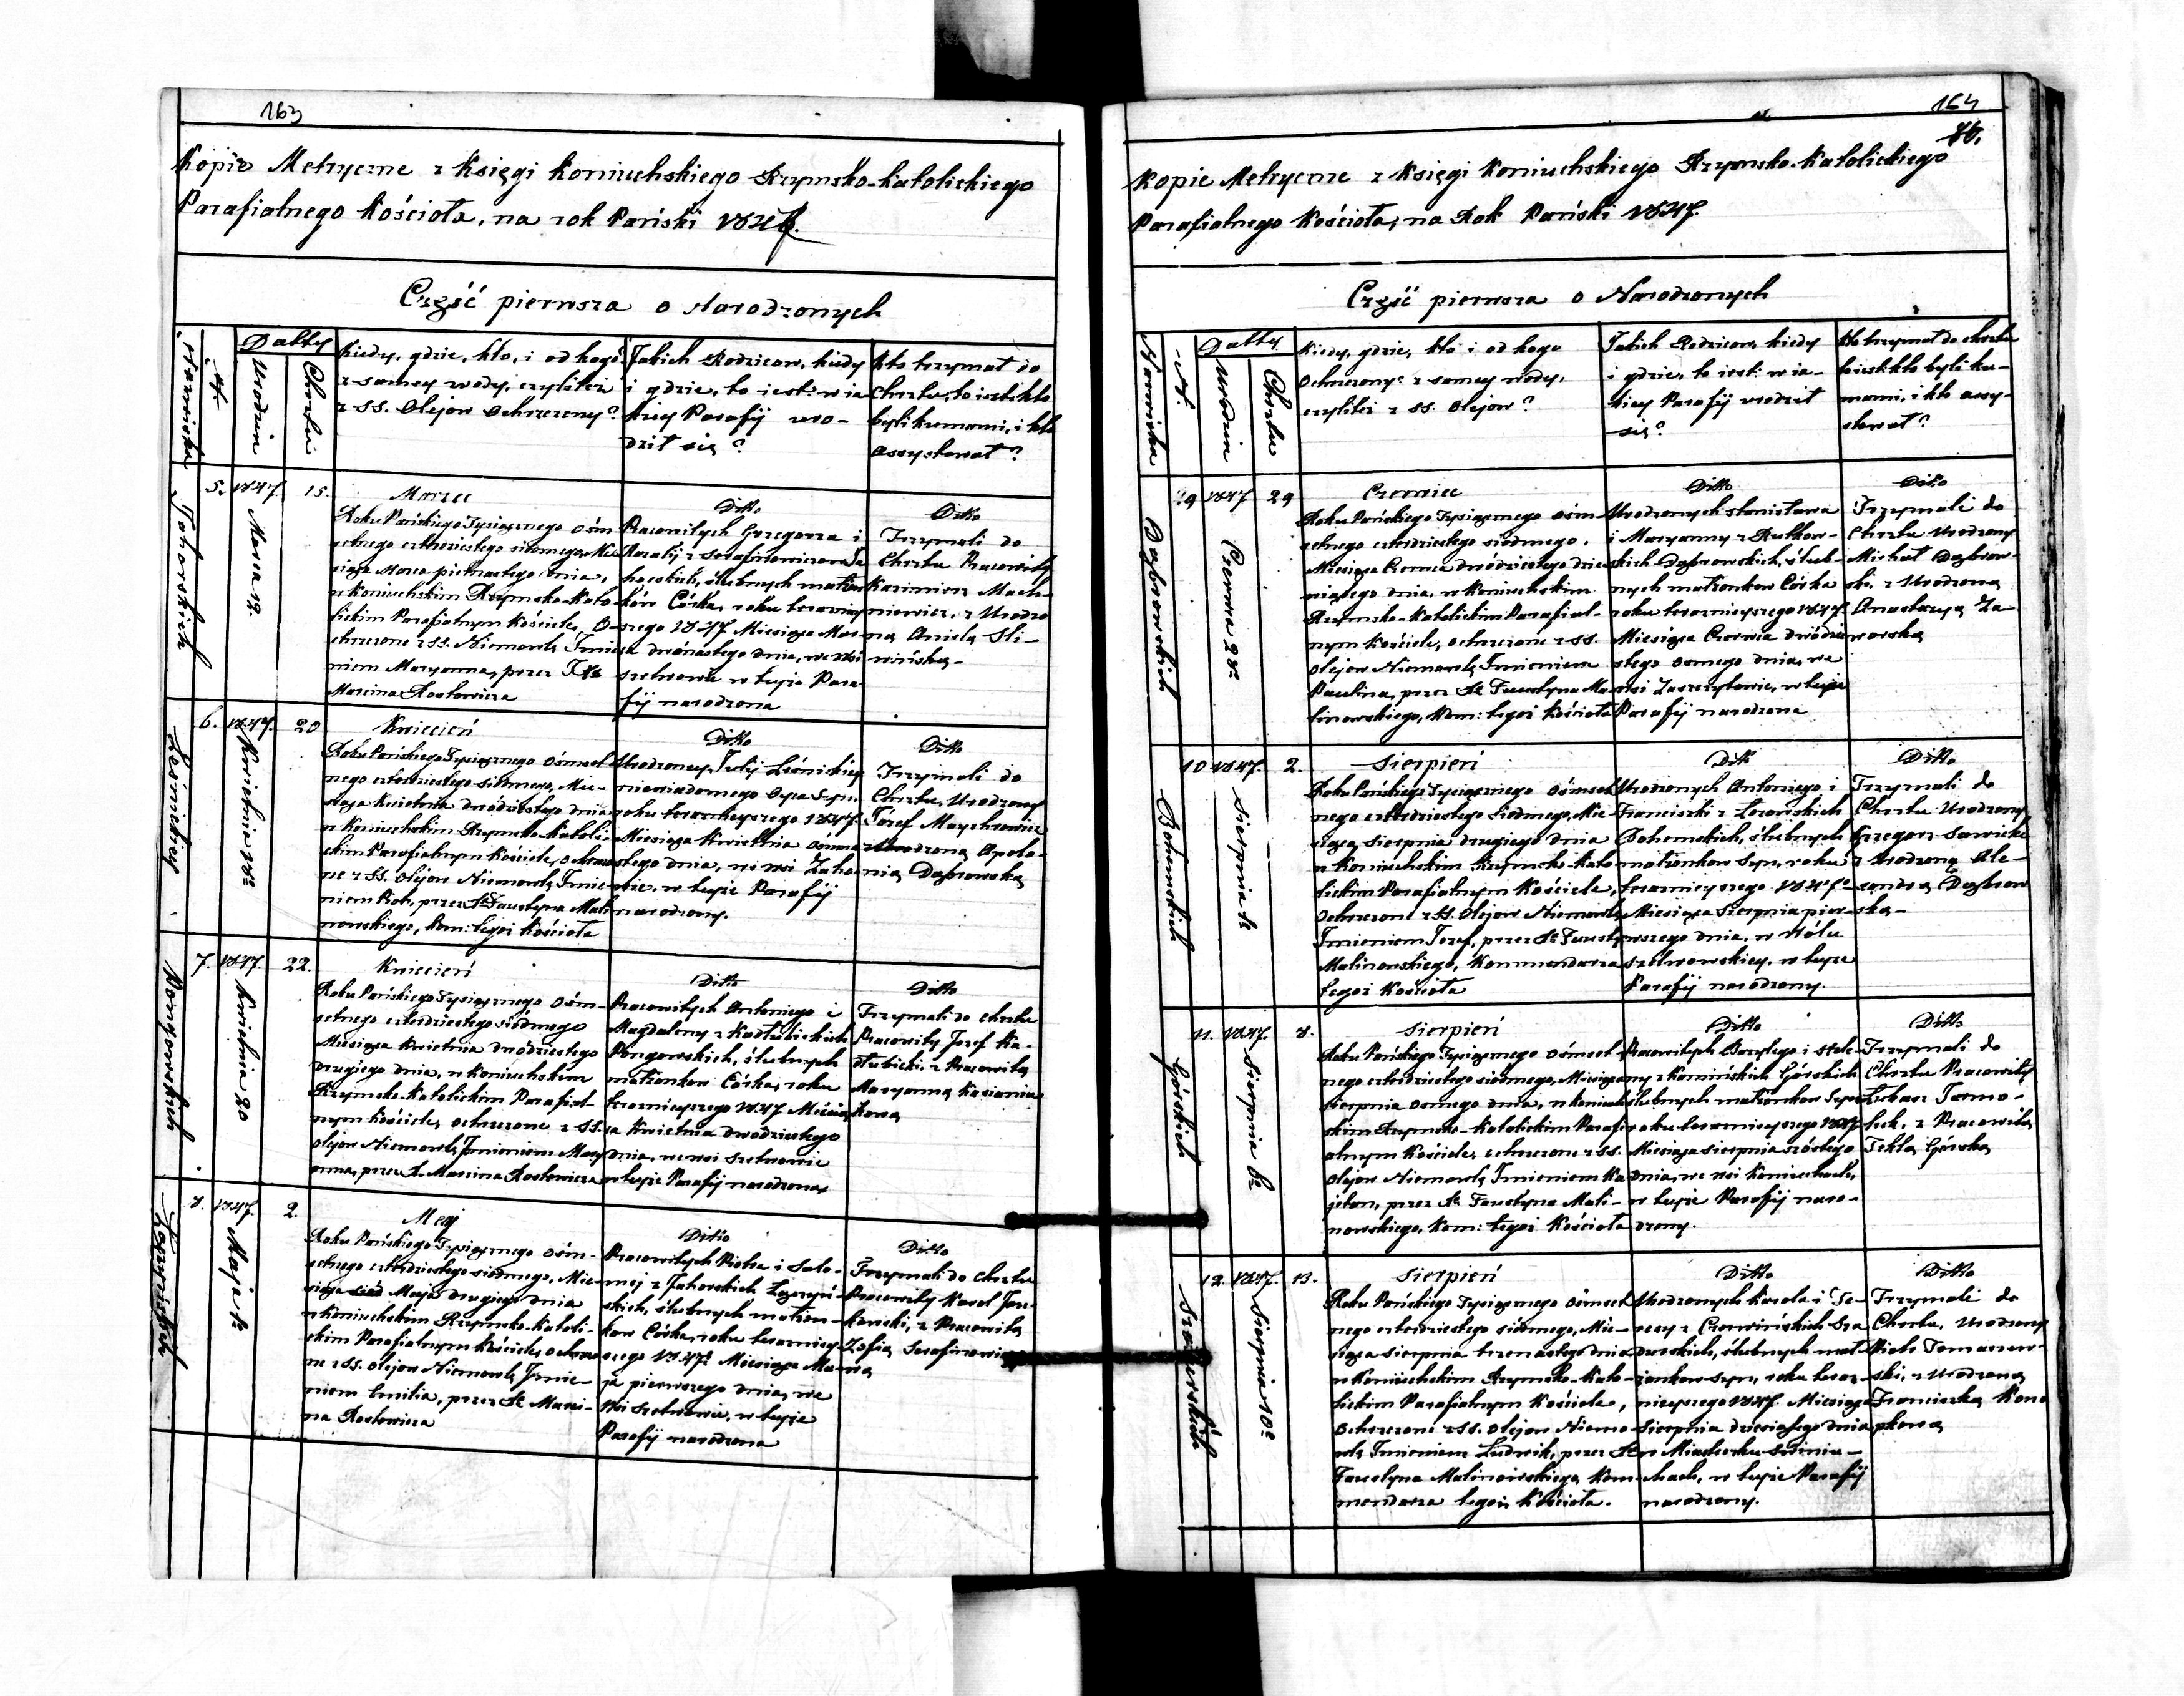 163
Kopie Metryczne z Księgi Koniuchskiego Rzymsko-Katolickiego
Parafialnego Kościoła, na rok Pański 1847.
Część pierwsza o Narodzonych
Nazwiska
N
Datty
Urodzin
Chrztu
Kiedy, gdzie, kto, i od kogo
z samey wody, czyliteż
z SS. Olejow Ochrzczony?
Jakich Rodzicow, kiedy
i gdzie, to iest: w ia
kiey Parafij uro-
dził się?
Kto trzymał do
Chrztu, to iest: kto
byli kumami, i kto
assystował?
5.
1847
Marca 12.
15.
Marzec
Roku Pańskiego Tysiącznego Ośm
setnego czterdziestego siodmego, Mie
siąca Marca piętnastego dnia,
w Koniuchskim Rzymsko-Kato
lickim Parafialnym Kościele, O-
chrzczono z SS. Niemowlę Imie
niem Maryanna, przez
Marcina Rostowicza
Ditto
Pracowitych Grzegorza i
Rozalij z Serafinowiczow Ja
horskich, ślubnych małżon
ków Córka, roku teraźniey
szego 1847 Miesiąca Mar
ca dwónastego dnia, we Wsi
Szelwowie w teyże Para
fij narodzona
Ditto
Trzymali do
Chrztu Pracowity
Kazimierz Mach-
niewicz, z Urodzo
ną Anielą Sli-
wińską-
6.
1847.
Kwietnia
20
Leśnickiey
Kwiecień
Roku Pańskiego Tysiącznego Ośmset
nego czterdziestego siodmego, Mie-
siąca Kwietnia dwódziestego dnia
w Koniuchskim Rzymsko-Katoli-
ckim Parafialnym Kościele, ochrzczo
ne z SS. Olejow Niemowlę Imie
niem Piotr, przez X. Faustyna Mali
nowskiego, Kom: tegoż Kościoła
Ditto
Urodzoney Julij Leśnickiey
niewiadomego Oyca Syn,
roku teraznieyszego 1847.
Miesiąca Kwietnia ósmna
stego dnia, we wsi Zaho-
wie, w teyże Parafij
narodzony.
Ditto
Trzymali do
Chrztu, Urodzony
Jozef Maychrowicz
z Urodzoną Apolo-
nią Dąbrowską
7.
1847.
Kwietnia 20
22.
Pongowskich
Kwiecień
Roku Pańskiego Tysiącznego Ośm-
setnego czterdziestego siódmego
Miesiąca Kwietnia dwódziestego
drugiego dnia, w Koniuchskim
Rzymsko-Katolickim Parafial-
nym Kościele, ochrzczone z SS.
Olejow Niemowlę, Imieniem Mary
anna, przez X. Marcina Rostowicza
Ditto
Pracowitych Antoniego i
Magdaleny z Kadłubickich
Pongowskich, ślubnych
małżonkow Córka, roku
teraznieyszego 1847 Miesią
ca Kwietnia dwodziestego
dnia, we wsi Szelwowie
w teyże Parafij narodzona
Ditto
Trzymali do chrztu
Pracowity Jozef Ka-
dłubicki, z Pracowitą
Maryanną Kasianiu
kową
8.
1847
Maja 1
2.
Łozyńskich
Maj
Roku Pańskiego Tysiącznego Ośm-
setnego czterdziestego siodmego, Mie-
siąca Maja drugiego dnia
w Koniuchskim Rzymsko-Katoli-
ckim Parafialnym Kościele, ochrzczo
ne z SS. Olejow Niemowlę Imie-
niem Emilia, przez X. Marci-
na Rostowicza
Ditto
Pracowitych Piotra i Salo-
mej z Jahorskich Łozyń-
skich, ślubnych małżon-
kow Córka, roku teraźniey
szego 1847. Miesiąca Ma
ja pierwszego dnia, we
Wsi Szelwowie, w teyże
Parafij narodzona
Ditto
Trzymali do Chrztu
Pracowity Karol Jan-
kowski, z Pracowitą
Zofią Serafinowiczo
wą
164
Kopie Metryczne z Księgi Koniuchskiego Rzymsko-Katolickiego
Parafialnego Kościoła, na Rok Pański 1847.
Część pierwsza o Narodzonych
Nazwiska
Nr.
Datty
Urodzin
Chrztu
Kiedy, gdzie, kto i od kogo
Ochrzczony z samey wody,
czyliteż z SS. Olejow?
Jakich Rodzicow, kiedy
i gdzie, to iest: w ia-
kiey Parafij urodził
się?
Kto trzymał do chrztu
to iest: kto byli ku-
mami, i kto assy-
stował?
9
1847
Czerwca 28
29
Dąbrowskich
Czerwiec
Roku Pańskiego Tysiącznego Ośm-
setnego czterdziestego siódmego.
Miesiąca Czerwca dwódziestego dzie
wiątego dnia, w Koniuchskim
Rzymsko-Katolickim Parafial-
nym Kościele, ochrzczone z SS.
Olejow Niemowlę Imieniem
Paulina, przez X. Faustyna Ma
linowskiego, Kom: tegoż Kościoła
Ditto
Urodzonych Stanisława
i Maryanny z Rutkow-
skich Dąbrowskich, ślub-
nych małżonkow Córka
roku teraznieyszego 1847
Miesiąca Czerwca dwódzie
stego osmego dnia, we
wsi Zaszczytowie, w teyże
Parafij narodzona
Ditto
Trzymali do
Chrztu Urodzony
Michał Dąbrow-
ski, z Urodzoną
Anastazyą Za-
worską
10
1847.
Sierpnia 1
2.
Bohemskich
Sierpień
Roku Pańskiego Tysiącznego Ośmset
nego czterdziestego siodmego, Mie
siąca Sierpnia drugiego dnia
w Koniuchskim Rzymsko-Kato
lickim Parafialnym Kościele,
Ochrzczone z SS. Olejow Niemowlę
Imieniem Jozef, przez X. Fausty
Malinowskiego, Kommendarza
tegoż Kościoła
Ditto
Urodzonych Antoniego i
Franciszki z Łozowskich
Bohemskich, ślubnych
małżonkow Syn, roku
teraznieyszego 1847
Miesiąca Sierpnia pier-
wszego dnia, w Wólce
Szelwowskiey, w teyże
Parafij narodzony.
Ditto
Trzymali do
Chrztu Urodzony
Grzegorz Sawicki
z Urodzoną Ale-
xandrą Dąbrow
ską-
11.
1847.
Sierpnia 6
8.
Górskich
Sierpień
Roku Pańskiego Tysiącznego Ośmset
nego czterdziestego siódmego, Miesiąca
Sierpnia osmego dnia, w Koniuch
skim Rzymsko-Katolickim Parafi
alnym Kościele, ochrzczone z SS.
Olejow Niemowlę Imieniem Ka
jetan, przez X. Faustyna Mali-
nowskiego, Kom: tegoż Kościoła
Ditto
Pracowitych Bazylego i Stefa
ny z Kamińskich Górskich
ślubnych małżonkow Syn
roku teraznieyszego 1847
Miesiąca Sierpnia szóstego
dnia, we wsi Koniuchach,
w teyże Parafij naro-
dzony.
Ditto
Trzymali do
Chrztu Pracowity
Łukasz Jarmo-
luk, z Pracowitą
Teklą Górską
12.
1847.
Sierpnia 10
13.
Sierpień
Roku Pańskiego Tysiącznego Ośmset
nego czterdziestego siódmego, Mie-
siąca Sierpnia trzynastego dnia
w Koniuchskim Rzymsko-Kato-
lickim Parafialnym Kościele,
Ochrzczone z SS. Olejow Niemo
wlę Imieniem Ludwik, przez X.
Faustyna Malinowskiego, Kom-
mendarza tegoż Kościoła.
Ditto
Urodzonych Karola i Te-
resy z Czerwińskich Sza
durskich, ślubnych mał
żonkow Syn, roku teraz-
nieyszego 1847 Miesiąca
Sierpnia dziesiątego dnia
w Miasteczku Swiniu-
chach, w teyże Parafij
narodzony.
Ditto
Trzymali do
Chrztu, Urodzony
Piotr Tomaszew-
ski, z Urodzoną
Franciszką Kono
pkową